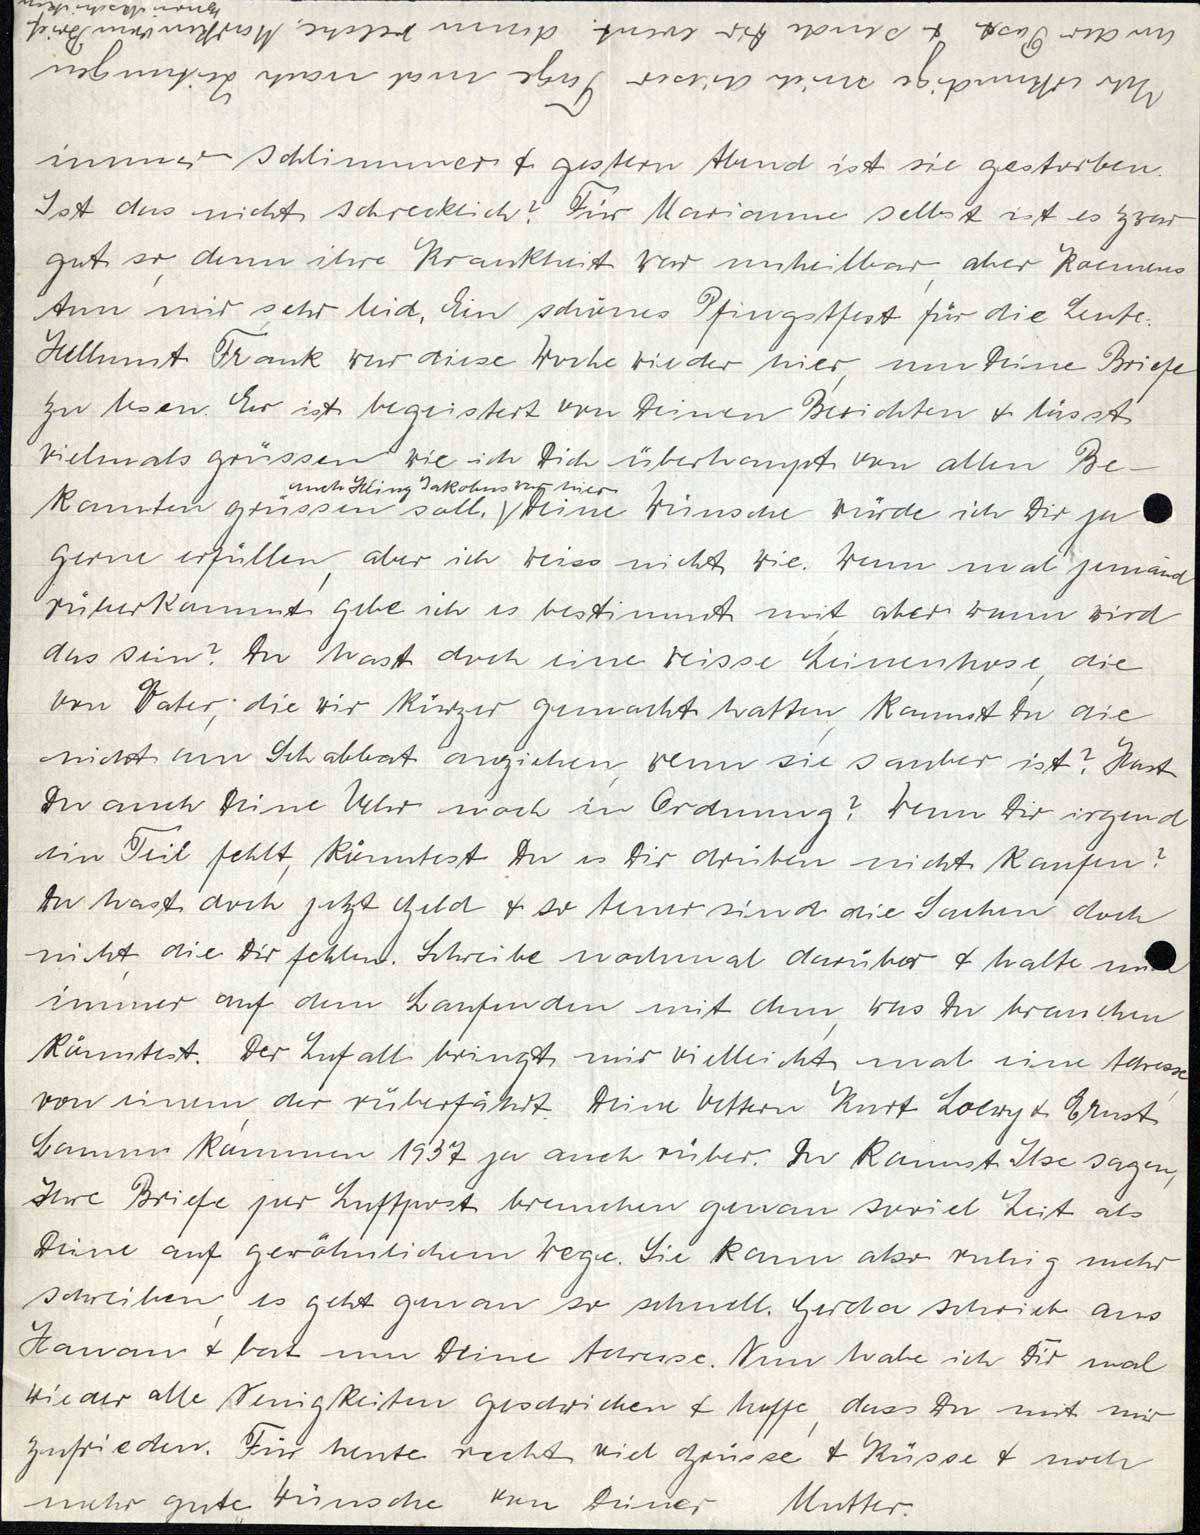 immer schlimmer & gestern Abend ist sie gestorben.
Ist das nicht schrecklich? Für Marianne selbst ist es zwar
gut so, denn ihre Krankheit war unheilbar, aber Koemens
tun mir sehr leid. Ein schönes Pfingstfest für die Leute.
Hellmut Frank war diese Woche wieder hier, um Deine Briefe
zu lesen. Er ist begeistert von Deinen Berichten & lässt
vielmals grüssen wie ich Dich überhaupt von allen Be-
auch Jakobus von hier
kannten grüssen soll. Deine Wünsche würde ich Dir ja
gerne erfüllen, aber ich weiss nicht wie. Wenn mal jemand
rüberkommt gebe ich es bestimmt mit, aber wann wird
das sein? Du hast doch eine weisse Leinenhose, die
von Vater, die wir kürzer gemacht hatten, kannst Du die
nicht am Schabbat anziehen, wenn sie sauber ist? Hast
Du auch Deine Uhr noch in Ordnung? Wenn Dir irgend
ein Teil fehlt, könntest Du es Dir drüben nicht kaufen?
Du hast doch jetzt Geld & so teuer sind die Sachen doch
nicht, die Dir fehlen. Schreibe nochmal darüber & halte mich
immer auf dem Laufenden mit dem, was Du brauchen
könntest. Der Zufall bringt mir vielleicht mal eine Adresse
von einem der rüberfährt. Deine Vettern Kurt Loewy & Ernst
Lamm kommen 1937 ja auch rüber. Du kannst Ilse sagen,
Ihre Briefe per Luftpost brauchen genau soviel Zeit als
Deine auf gewöhnlichem Wege. Sie kann also ruhig mehr
schreiben, es geht genau so schnell. Gerda schrieb aus
Hanau & bat um Deine Adresse. Nun habe ich Dir mal
wieder alle Neuigkeiten geschrieben & hoffe, dass Du mit mir
zufrieden. Für heute recht viel Grüsse & Küsse & noch
mehr gute Wünsche von Deiner Mutter.
Ich erkundige mich dieser Tage mal nach Zeitungen
an der Post & sende Dir event. dann welche, Marken vom Brief